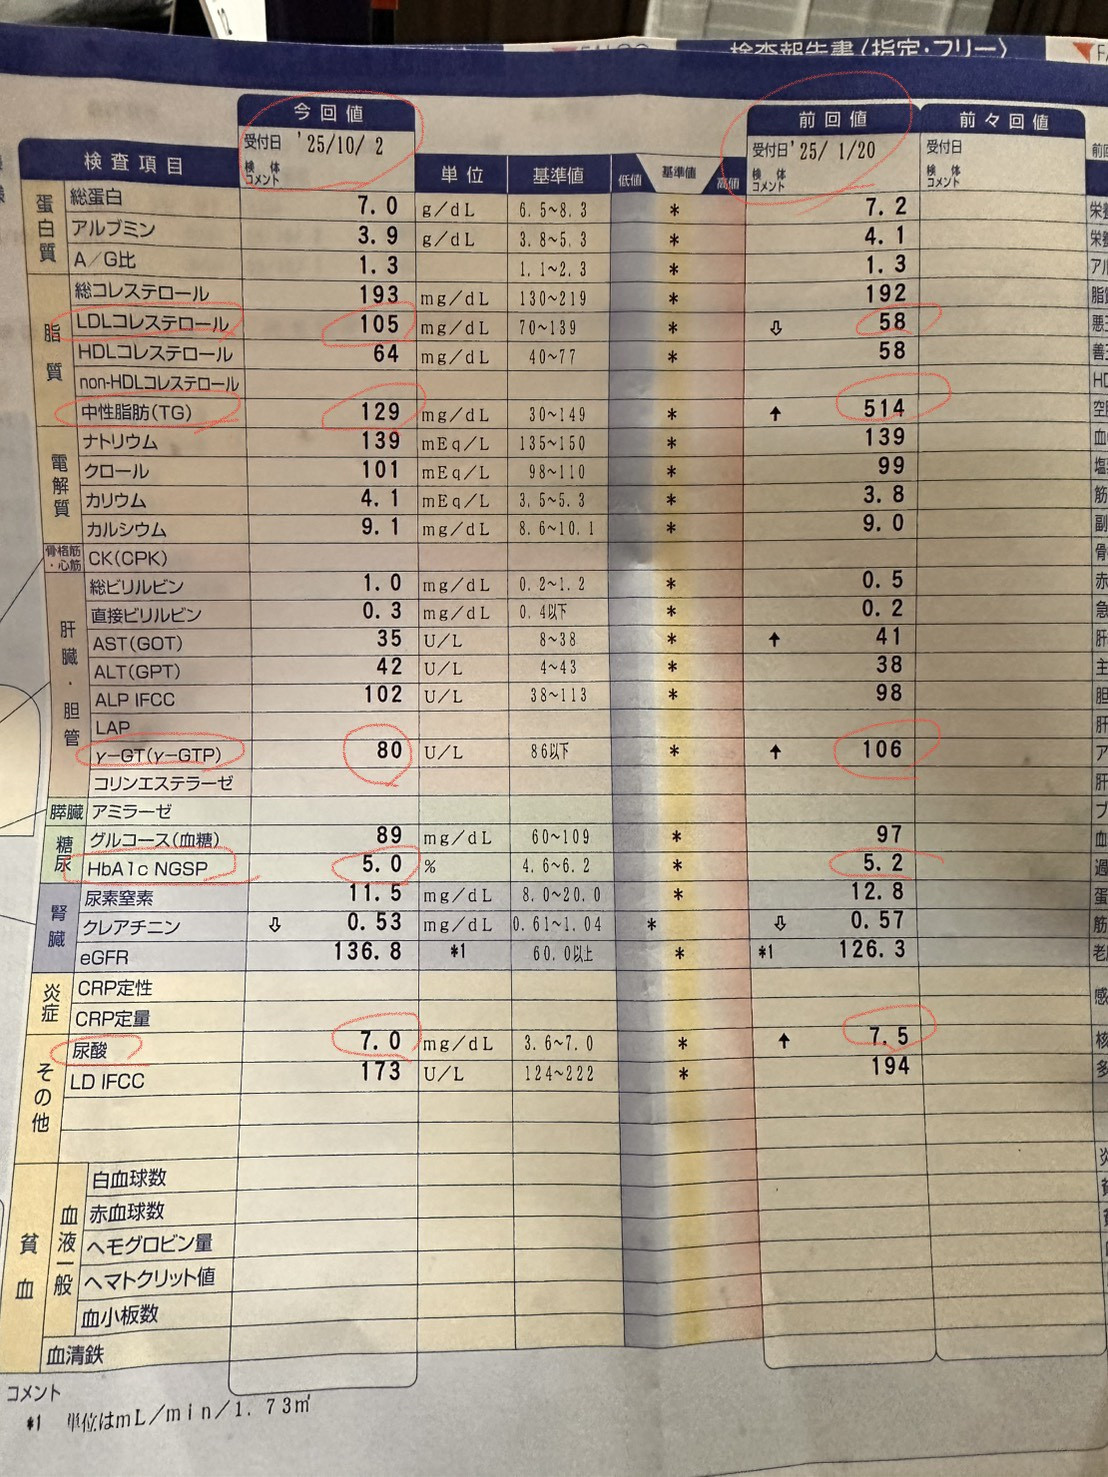 12
FALCO
検査報告書〈指定・フリー〉
今回値
前回値
前々回値
受付日 '25/10/ 2
受付日 '25/ 1/20
受付日
検体コメント
検体コメント
検体コメント
検査項目 単位 基準値 低値 基準値 高値
蛋白質
総蛋白 7.0 g/dL 6.5~8.3 * 7.2
アルブミン 3.9 g/dL 3.8~5.3 * 4.1
A/G比 1.3 1.1~2.3 * 1.3
脂質
総コレステロール 193 mg/dL 130~219 * 192
LDLコレステロール 105 mg/dL 70~139 * ⇩ 58
HDLコレステロール 64 mg/dL 40~77 * 58
non-HDLコレステロール
中性脂肪(TG) 129 mg/dL 30~149 * ↑ 514
電解質
ナトリウム 139 mEq/L 135~150 * 139
クロール 101 mEq/L 98~110 * 99
カリウム 4.1 mEq/L 3.5~5.3 * 3.8
カルシウム 9.1 mg/dL 8.6~10.1 * 9.0
骨格筋・心筋 CK(CPK)
肝臓・胆管
総ビリルビン 1.0 mg/dL 0.2~1.2 * 0.5
直接ビリルビン 0.3 mg/dL 0.4以下 * 0.2
AST(GOT) 35 U/L 8~38 * ↑ 41
ALT(GPT) 42 U/L 4~43 * 38
ALP IFCC 102 U/L 38~113 * 98
LAP
γ-GT(γ-GTP) 80 U/L 86以下 * ↑ 106
コリンエステラーゼ
膵臓 アミラーゼ
糖尿
グルコース(血糖) 89 mg/dL 60~109 * 97
HbA1c NGSP 5.0 % 4.6~6.2 * 5.2
腎臓
尿素窒素 11.5 mg/dL 8.0~20.0 * 12.8
クレアチニン ⇩ 0.53 mg/dL 0.61~1.04 * ⇩ 0.57
eGFR 136.8 *1 60.0以上 * *1 126.3
炎症
CRP定性
CRP定量
その他
尿酸 7.0 mg/dL 3.6~7.0 * ↑ 7.5
LD IFCC 173 U/L 124~222 * 194
貧血
血液一般
白血球数
赤血球数
ヘモグロビン量
ヘマトクリット値
血小板数
血清鉄
コメント
*1 単位はmL/min/1.73㎡